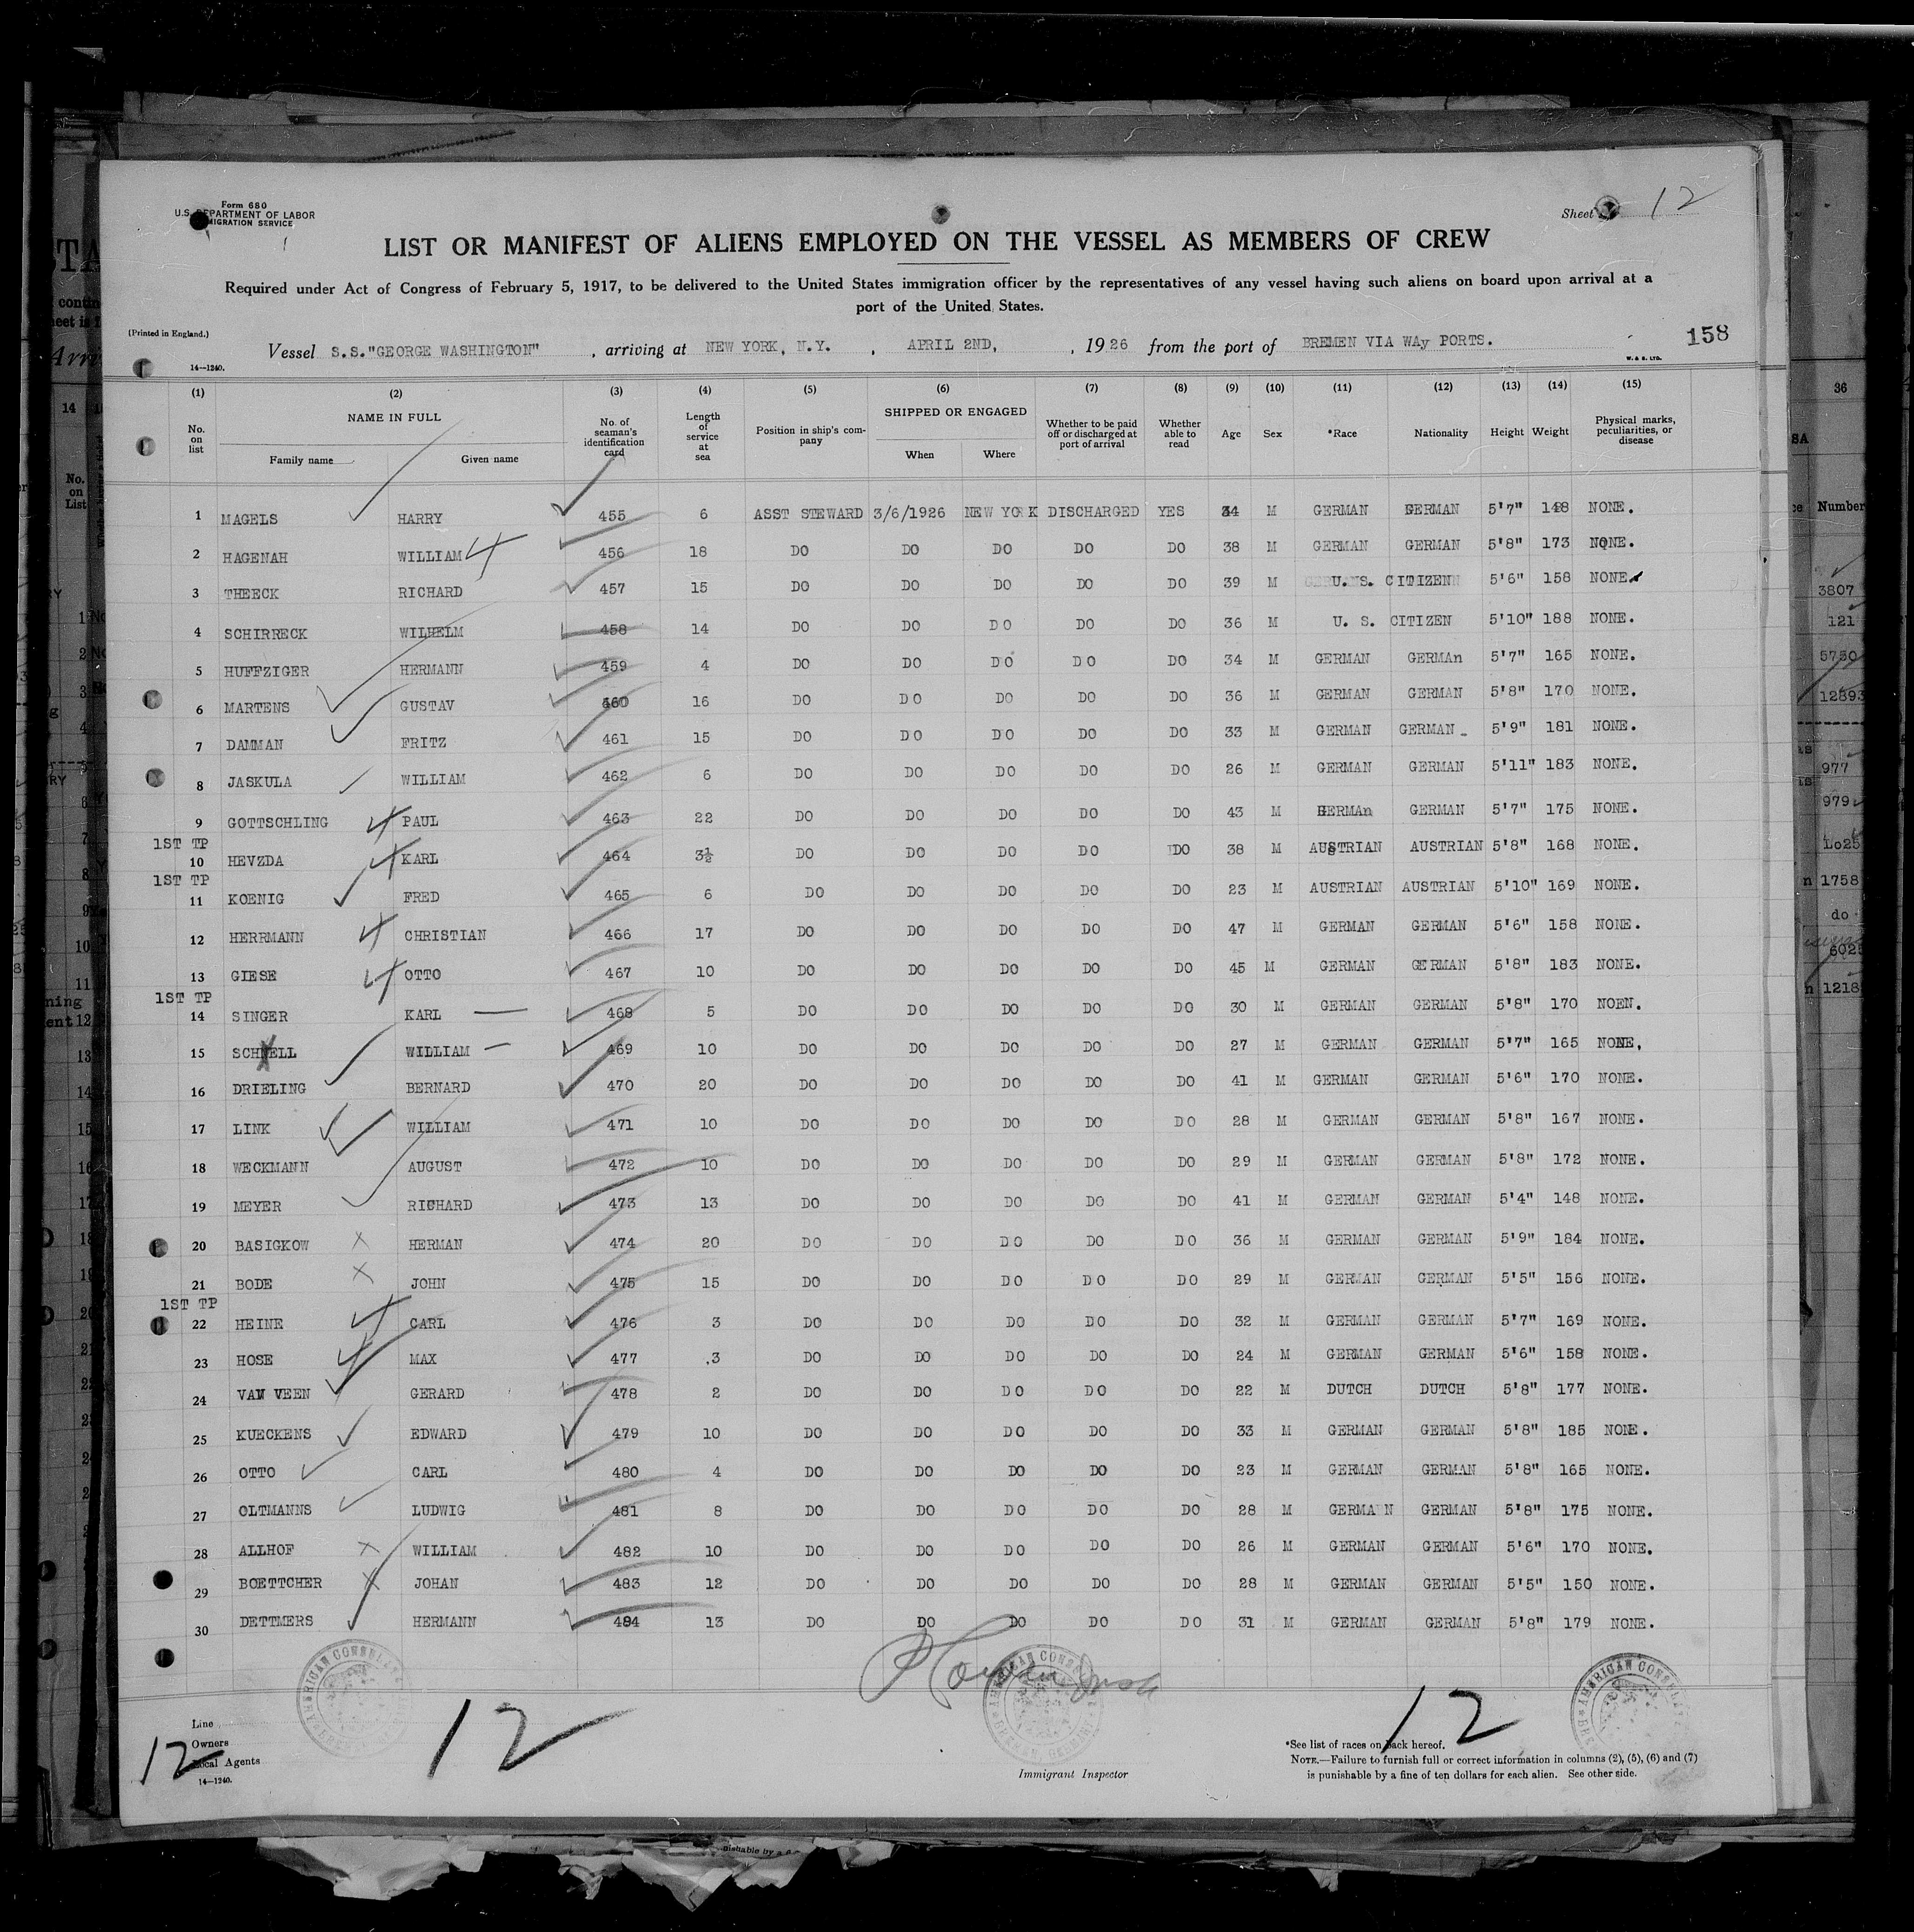 Form 680
U.S. DEPARTMENT OF LABOR
IMMIGRATION SERVICE
Sheet 12
LIST OR MANIFEST OF ALIENS EMPLOYED ON THE VESSEL AS MEMBERS OF CREW
Required under Act of Congress of February 5, 1917, to be delivered to the United States immigration officer by the representatives of any vessel having such aliens on board upon arrival at a
port of the United States.
(Printed in England.)
Vessel S.S."GEORGE WASHINGTON" , arriving at NEW YORK, N.Y. , APRIL 2ND, , 1926 from the port of BREMEN VIA WAy PORTS. 158
14—1240. W. & S. LTD.
(1) (2) (3) (4) (5) (6) (7) (8) (9) (10) (11) (12) (13) (14) (15)
No. on list NAME IN FULL Family name Given name No. of seaman's identification card Length of service at sea Position in ship's company SHIPPED OR ENGAGED When Where Whether to be paid off or discharged at port of arrival Whether able to read Age Sex *Race Nationality Height Weight Physical marks, peculiarities, or disease
1 MAGELS HARRY 455 6 ASST STEWARD 3/6/1926 NEW YORK DISCHARGED YES 34 M GERMAN GERMAN 5'7" 148 NONE.
2 HAGENAH WILLIAM 456 18 DO DO DO DO DO 38 M GERMAN GERMAN 5'8" 173 NONE.
3 THEECK RICHARD 457 15 DO DO DO DO DO 39 M U. S. CITIZEN 5'6" 158 NONE.
4 SCHIRRECK WILHELM 458 14 DO DO DO DO DO 36 M U. S. CITIZEN 5'10" 188 NONE.
5 HUFFZIGER HERMANN 459 4 DO DO DO DO DO 34 M GERMAN GERMAn 5'7" 165 NONE.
6 MARTENS GUSTAV 460 16 DO DO DO DO DO 36 M GERMAN GERMAN 5'8" 170 NONE.
7 DAMMAN FRITZ 461 15 DO DO DO DO DO 33 M GERMAN GERMAN 5'9" 181 NONE.
8 JASKULA WILLIAM 462 6 DO DO DO DO DO 26 M GERMAN GERMAN 5'11" 183 NONE.
9 GOTTSCHLING PAUL 463 22 DO DO DO DO DO 43 M GERMAn GERMAN 5'7" 175 NONE.
1ST TP
10 HEVZDA KARL 464 3½ DO DO DO DO DO 38 M AUSTRIAN AUSTRIAN 5'8" 168 NONE.
1ST TP
11 KOENIG FRED 465 6 DO DO DO DO DO 23 M AUSTRIAN AUSTRIAN 5'10" 169 NONE.
12 HERRMANN CHRISTIAN 466 17 DO DO DO DO DO 47 M GERMAN GERMAN 5'6" 158 NONE.
13 GIESE OTTO 467 10 DO DO DO DO DO 45 M GERMAN GERMAN 5'8" 183 NONE.
1ST TP
14 SINGER KARL 468 5 DO DO DO DO DO 30 M GERMAN GERMAN 5'8" 170 NOEN.
15 SCHNELL WILLIAM 469 10 DO DO DO DO DO 27 M GERMAN GERMAN 5'7" 165 NONE,
16 DRIELING BERNARD 470 20 DO DO DO DO DO 41 M GERMAN GERMAN 5'6" 170 NONE.
17 LINK WILLIAM 471 10 DO DO DO DO DO 28 M GERMAN GERMAN 5'8" 167 NONE.
18 WECKMANN AUGUST 472 10 DO DO DO DO DO 29 M GERMAN GERMAN 5'8" 172 NONE.
19 MEYER RICHARD 473 13 DO DO DO DO DO 41 M GERMAN GERMAN 5'4" 148 NONE.
20 BASIGKOW HERMAN 474 20 DO DO DO DO DO 36 M GERMAN GERMAN 5'9" 184 NONE.
21 BODE JOHN 475 15 DO DO DO DO DO 29 M GERMAN GERMAN 5'5" 156 NONE.
1ST TP
22 HEINE CARL 476 3 DO DO DO DO DO 32 M GERMAN GERMAN 5'7" 169 NONE.
23 HOSE MAX 477 .3 DO DO DO DO DO 24 M GERMAN GERMAN 5'6" 158 NONE.
24 VAN VEEN GERARD 478 2 DO DO DO DO DO 22 M DUTCH DUTCH 5'8" 177 NONE.
25 KUECKENS EDWARD 479 10 DO DO DO DO DO 33 M GERMAN GERMAN 5'8" 185 NONE.
26 OTTO CARL 480 4 DO DO DO DO DO 23 M GERMAN GERMAN 5'8" 165 NONE.
27 OLTMANNS LUDWIG 481 8 DO DO DO DO DO 28 M GERMAN GERMAN 5'8" 175 NONE.
28 ALLHOF WILLIAM 482 10 DO DO DO DO DO 26 M GERMAN GERMAN 5'6" 170 NONE.
29 BOETTCHER JOHAN 483 12 DO DO DO DO DO 28 M GERMAN GERMAN 5'5" 150 NONE.
30 DETTMERS HERMANN 484 13 DO DO DO DO DO 31 M GERMAN GERMAN 5'8" 179 NONE.
AMERICAN CONSULATE
AMERICAN CONSULATE BREMEN, GERMANY
AMERICAN CONSULATE
Line
Owners
Local Agents
14—1240.
12 12 12
Immigrant Inspector
*See list of races on back hereof.
NOTE.—Failure to furnish full or correct information in columns (2), (5), (6) and (7)
is punishable by a fine of ten dollars for each alien. See other side.